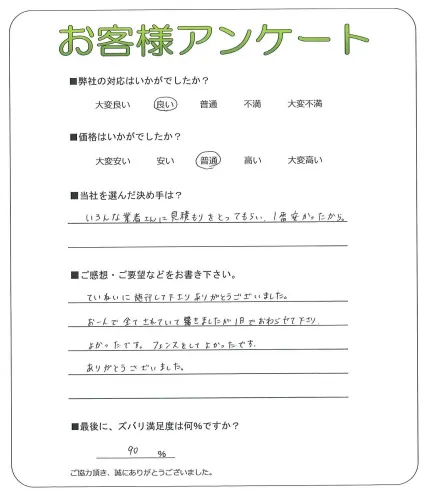 お客様アンケート
■弊社の対応はいかがでしたか？
大変良い 良い 普通 不満 大変不満
■価格はいかがでしたか？
大変安い 安い 普通 高い 大変高い
■当社を選んだ決め手は？
いろんな業者さんに見積もりをとってもらい、1番安かったから。
■ご感想・ご要望などをお書き下さい。
ていねいに施行して下さりありがとうございました。
お一人で全てされていて驚きましたが1日でおわらせて下さり、
よかったです。フェンスをしてよかったです。
ありがとうございました。
■最後に、ズバリ満足度は何％ですか？
90 ％
ご協力頂き、誠にありがとうございました。